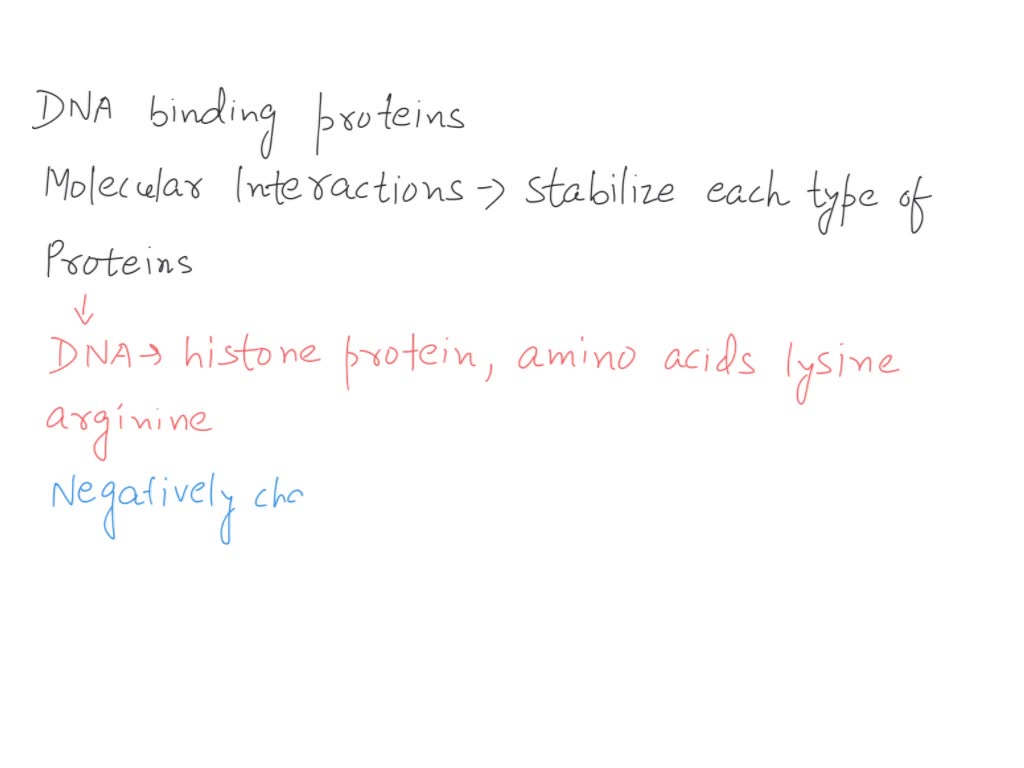 DNA binding proteins
Molecular Interactions → stabilize each type of
Proteins
↓
DNA → histone protein, amino acids lysine
arginine
Negatively cha